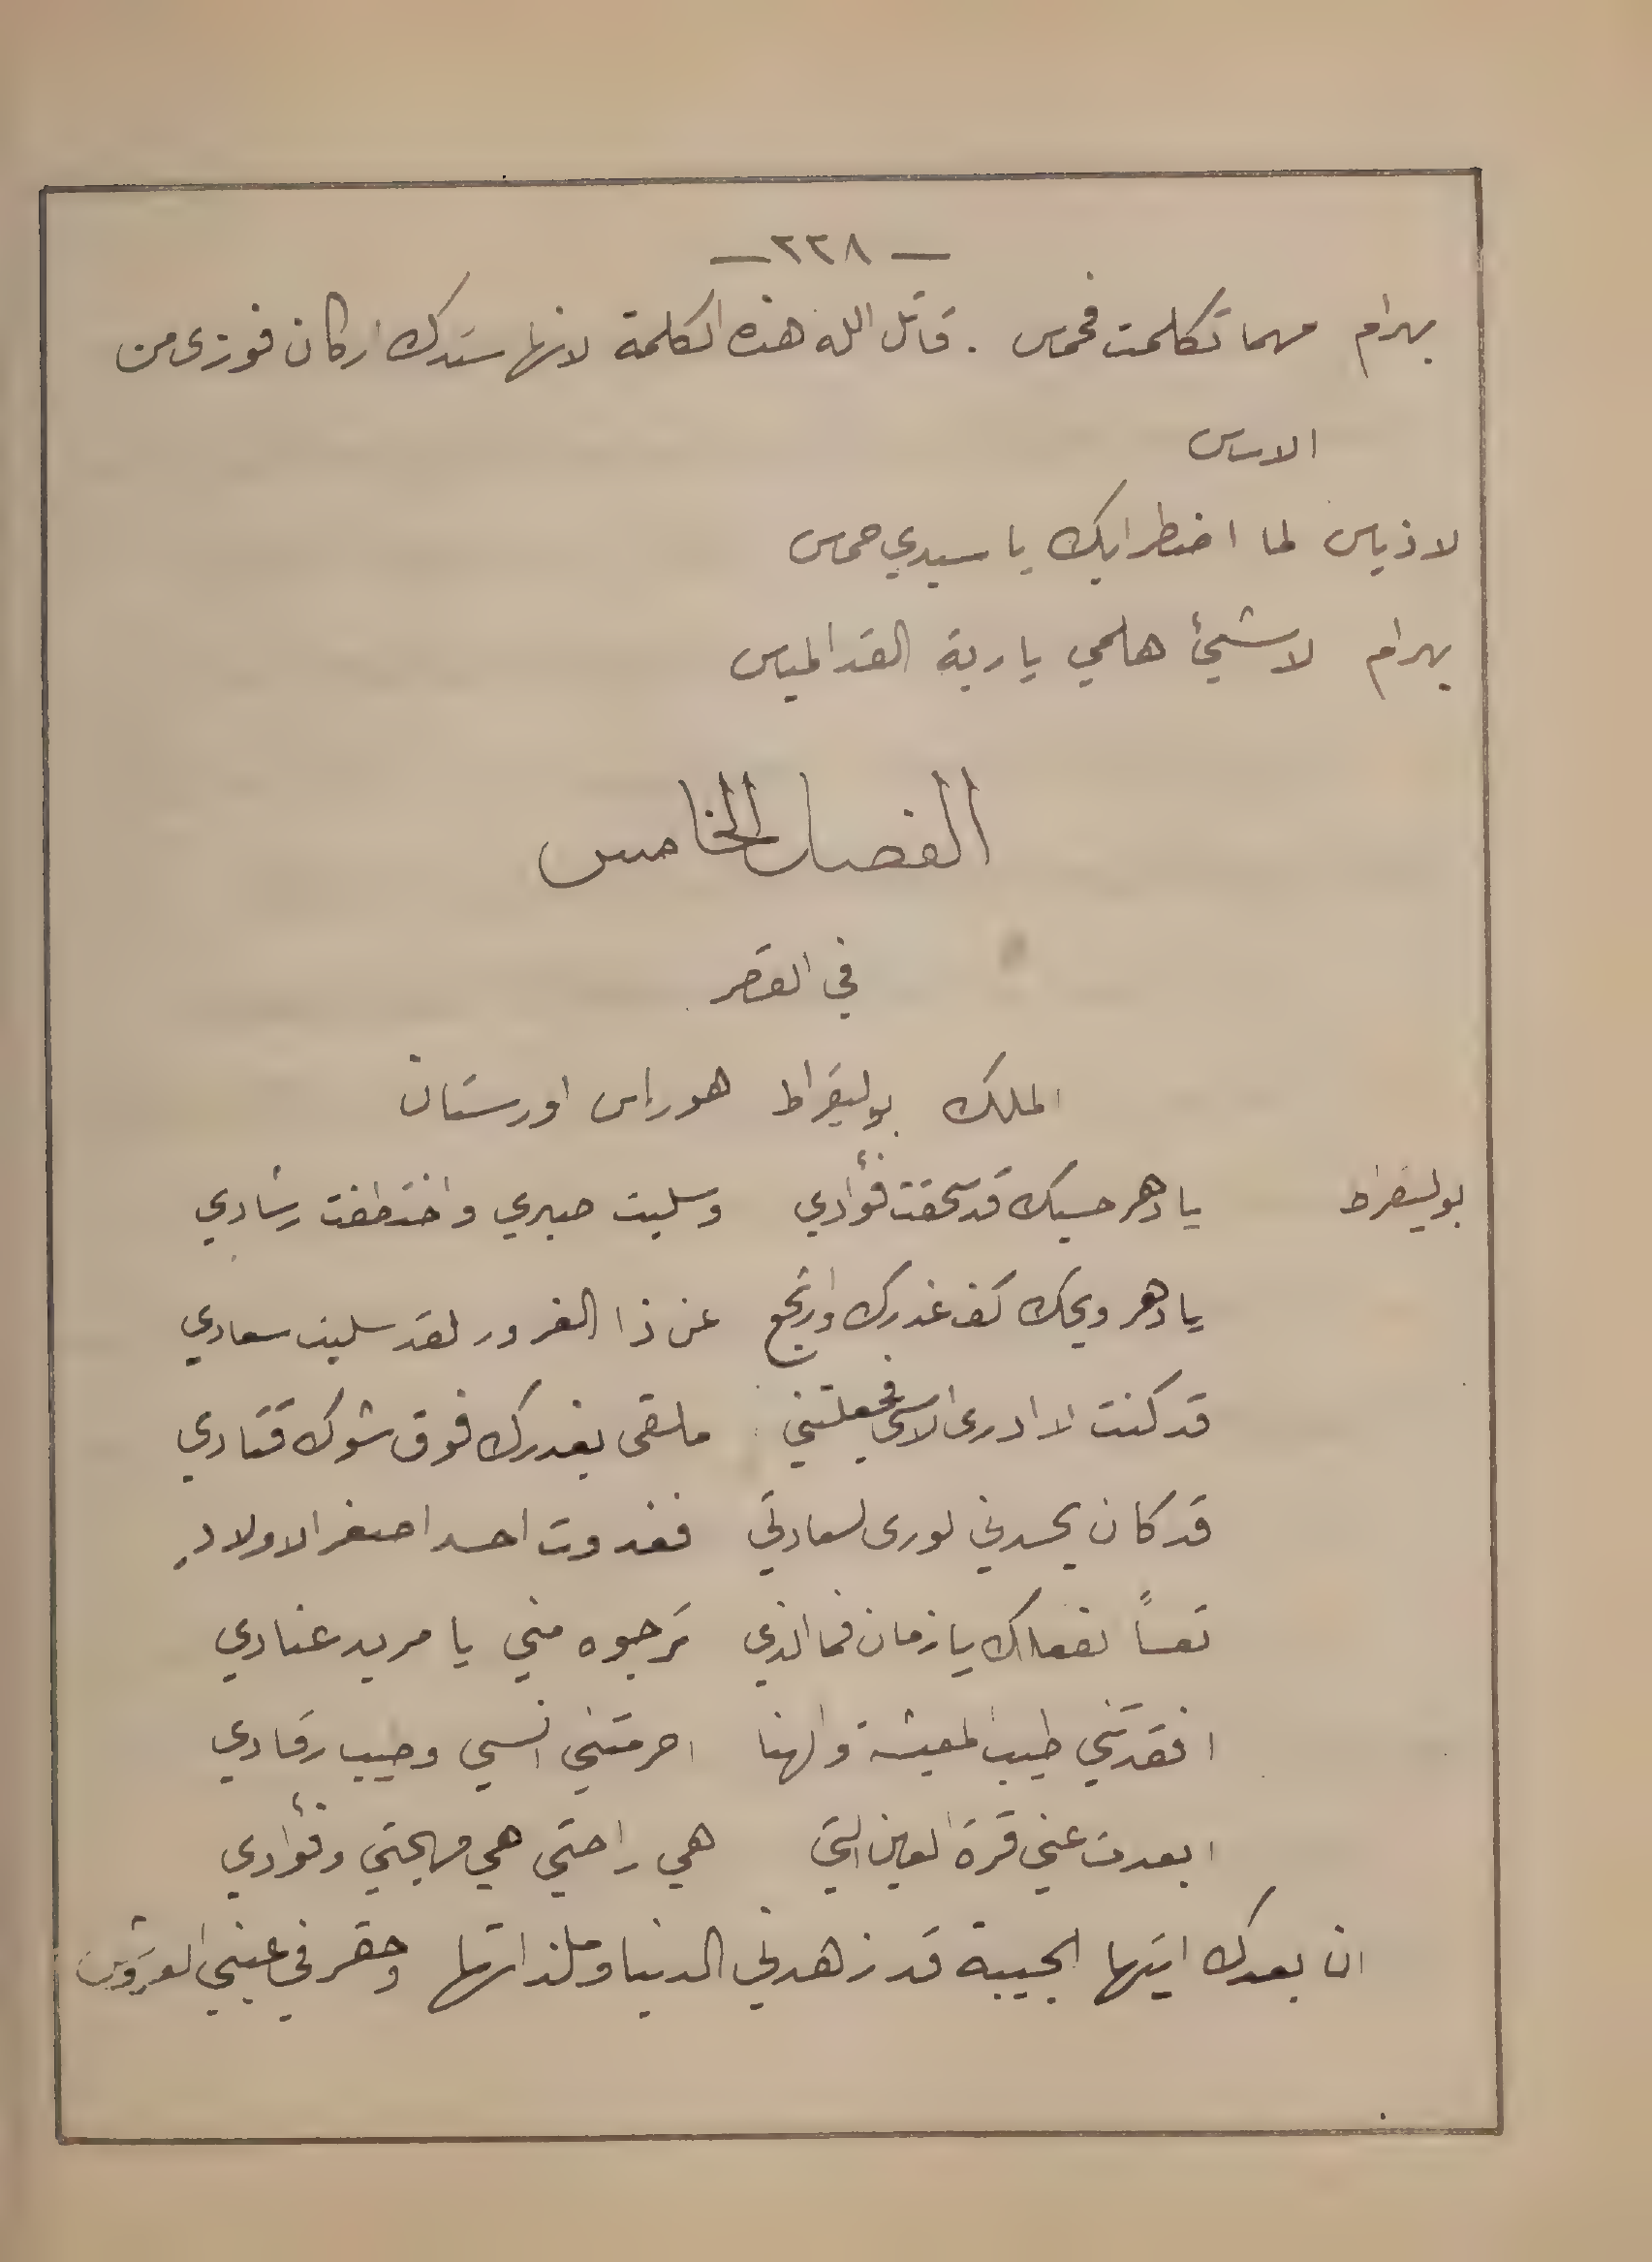 — ٢٢٨ —
بهرام مهما تكلمت فحمس . قاتل الله هذه الكلمة لانها ستدك اركان فوزى من
الاساس
لاذياس لما اضطرابك يا سيدي حمس
بهرام لا شيئ هلمي يا ربة القد المياس
الفصل الخامس
في القصر
الملك بوليقراط هوراس اورستان
بوليقراط يا دهر حسبك قد سحقت فؤادي وسلبت صبري واختطفت رشادي
يا دهر ويحك كف غدرك وارتجع عن ذا الغرور لقد سلبت سعادي
قد كنت لا ادرى الاسى فجعلتني ملقى بغدرك فوق شوك قتادي
قد كان يحسدني لورى لسعادتي فغدوت احسد اصغر الاولادِ
تعساً لفعلك يا زمان فما الذي ترجوه مني يا مريد عنادي
افقدتني طيب المعيشة والهنا احرمتني انسي وطيب رقادي
ابعدت عني قرة العين التي هي راحتي هي مهجتي وفؤادي
ان بعدك ايتها الحبيبة قد زهدني الدنيا وملذاتها وحقر في عيني العروش